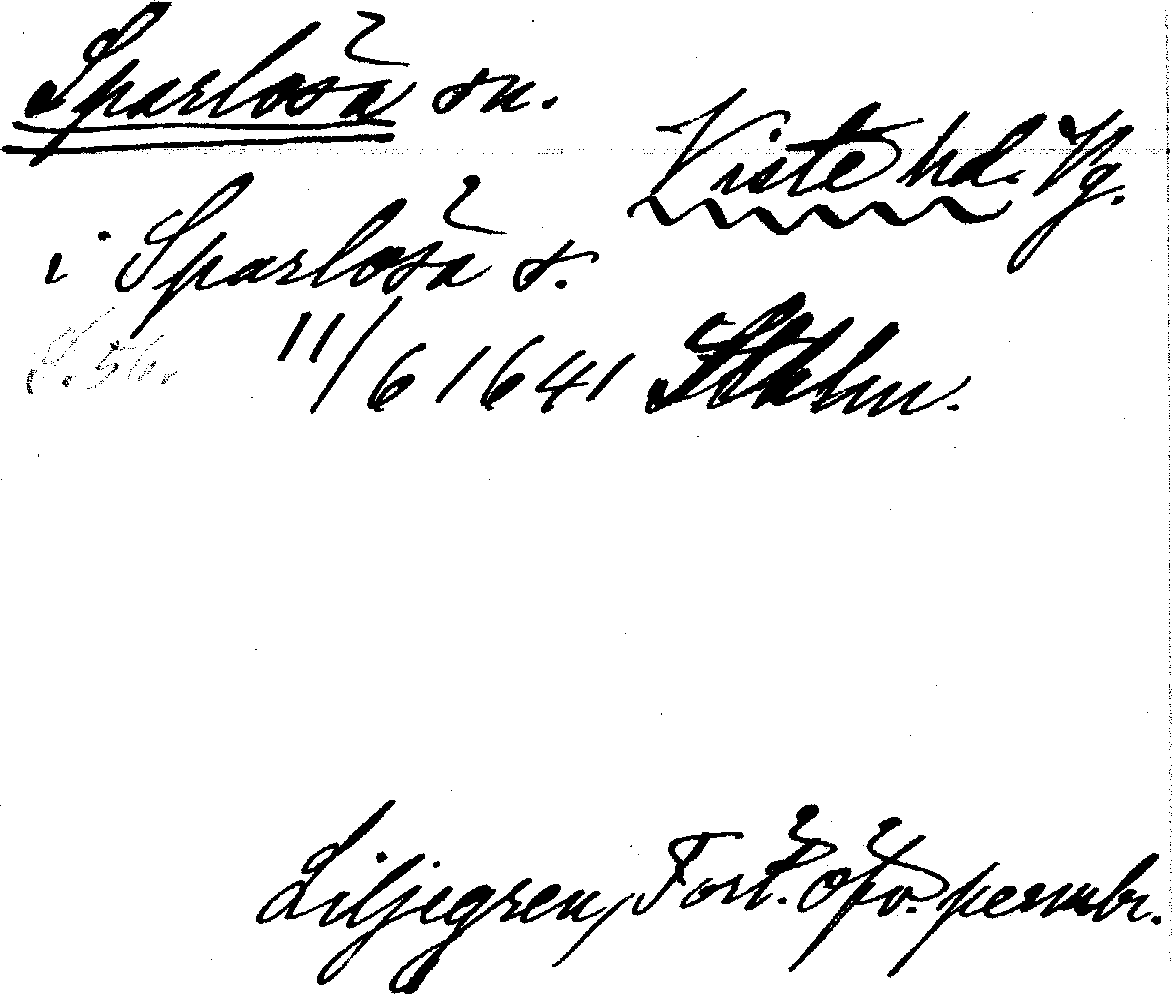 Sparlösa sn.
Viste hd. Vg.
i Sparlösa s.
S. 56. 11/6 1641 Sthlm.
Liljegren, Fört. öfv. permbr.